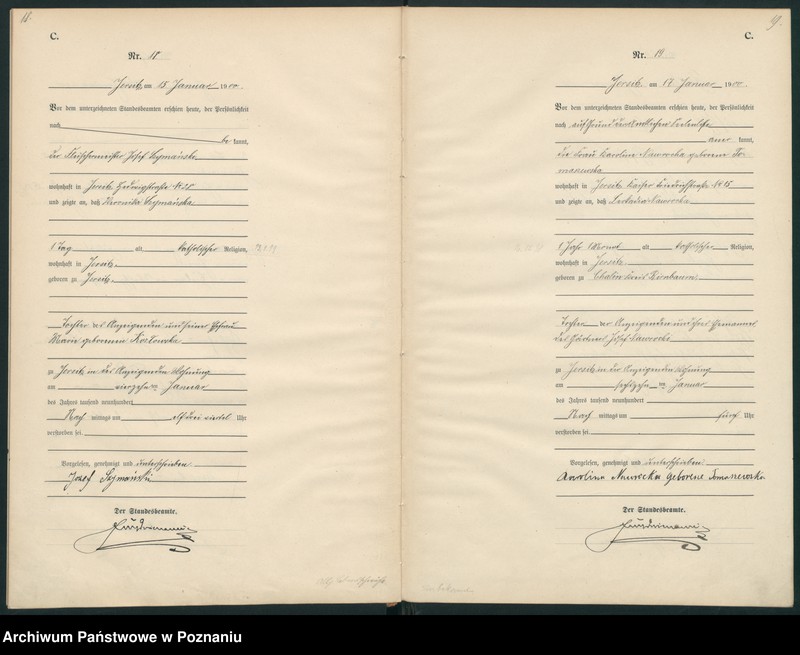 18.
C.
Nr. 18
Jersitz am 15 Januar 1900.
Vor dem unterzeichneten Standesbeamten erschien heute, der Persönlichkeit
nach
be kannt,
der Fleischermeister Josef Szymański
wohnhaft in Jersitz Hedwigstraße
und zeigte an, daß Veronika Szymańska
1 Tag alt katholischer Religion,
wohnhaft in Jersitz
geboren zu Jersitz
Tochter des Anzeigenden und seiner Ehefrau
Maria geborenen Kozłowska
zu Jersitz in des Anzeigenden Wohnung
am vierzehnten Januar
des Jahres tausend neunhundert
Nach mittags um elf drei viertel Uhr
verstorben sei.
Vorgelesen, genehmigt und unterschrieben
Jozef Szymański
Der Standesbeamte.
19.
C.
Nr. 19
Jersitz am 17 Januar 1900.
Vor dem unterzeichneten Standesbeamten erschien heute, der Persönlichkeit
nach auf Grund
aner kannt,
die Frau Karolina Nawrocka geborene To-
manewska
wohnhaft in Jersitz Kaiser Friedrichstraße
und zeigte an, daß Leokadia Nawrocka
1 Jahr 1 Monat alt katholischer Religion,
wohnhaft in Jersitz
geboren zu Chalin Kreis Birnbaum
Tochter der Anzeigenden und ihres Ehemannes
des Gärtners Josef Nawrocki
zu Jersitz in der Anzeigenden Wohnung
am sechszehnten Januar
des Jahres tausend neunhundert
Nach mittags um fünf Uhr
verstorben sei.
Vorgelesen, genehmigt und unterschrieben
Karolina Nawrocka geborene Tomanewska
Der Standesbeamte.
Archiwum Państwowe w Poznaniu